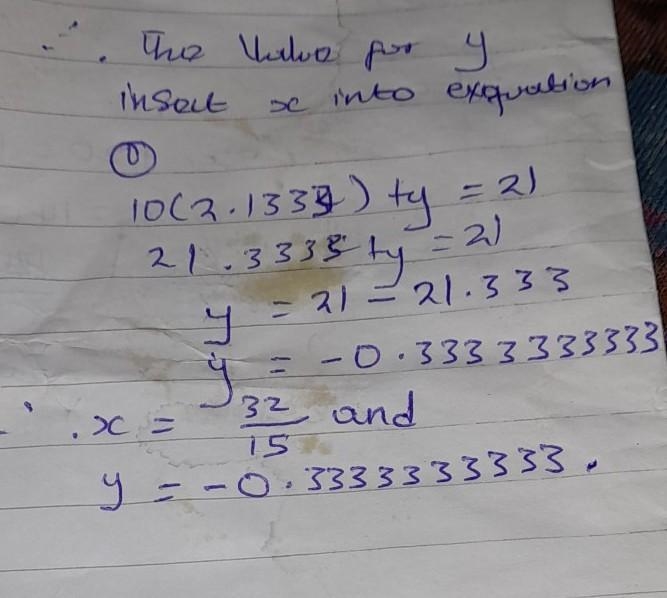 ∴ The Value for y
insert x into exquation
①
10(2.1333) + y = 21
21.3333 + y = 21
y = 21 - 21.333
y = -0.3333333333
∴ x = 32/15 and
y = -0.3333333333.